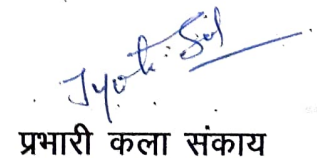 Jyoti
प्रभारी कला संकाय